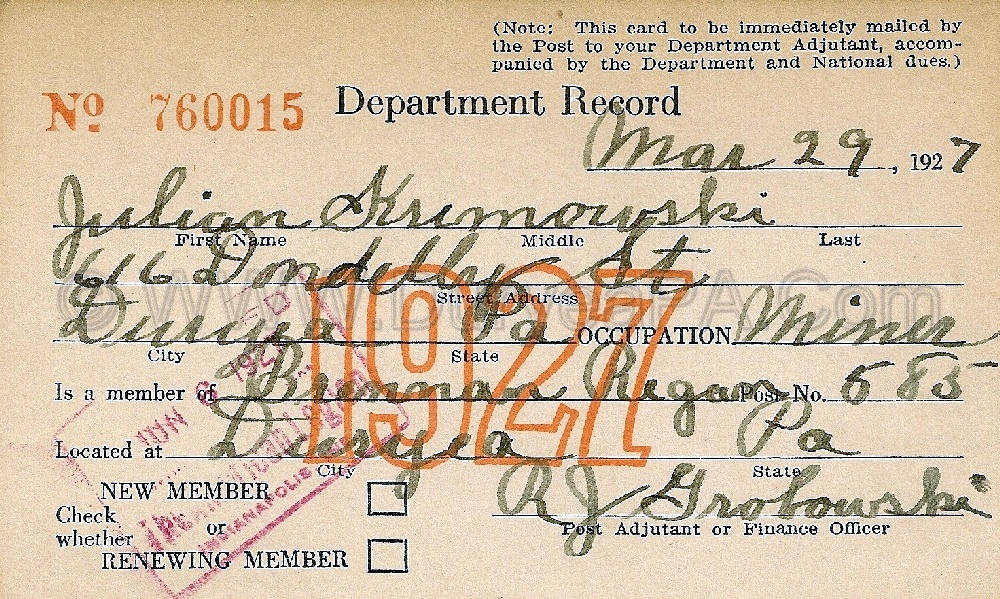 (Note: This card to be immediately mailed by
the Post to your Department Adjutant, accom-
panied by the Department and National dues.)
No 760015 Department Record
Mar 29, 1927
Julian Krimowski
First Name Middle Last
616 Donelly St
Street Address
Duryea Pa OCCUPATION Miner
City State
1927
Is a member of Brennan Regan Post No. 585
Located at Duryea Pa
City State
NEW MEMBER
Check
whether or
RENEWING MEMBER
R J Grobowski
Post Adjutant or Finance Officer
JUN 6 1927
INDIANAPOLIS
© WWW.DuryeaPA.Com